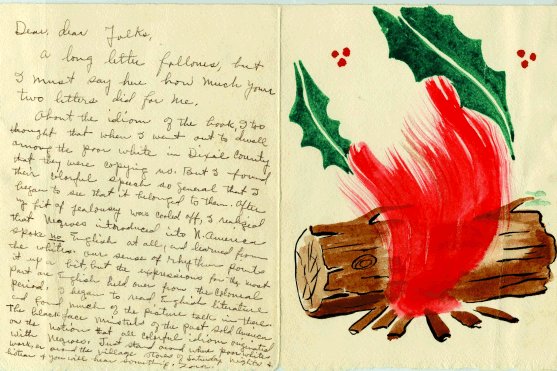 Dear, dear Folks,
A long letter follows, but
I must say here how much your
two letters did for me.
About the idiom of the book, I too
thought that when I went out to dwell
among the poor white in Dixie County
that they were copying us. But I found
their colorful speech so general that I
began to see that it belonged to them. After
my fit of jealousy was cooled off, I realized
that Negroes introduced into N. America
spoke no English at all, and learned from
the whites. Our sense of rhythm points
it up a bit, but the expressions for the most
part are English held over from the Colonial
period. I began to read English literature
and found much of the picture talk in there.
The black face minstrels of the past sold America
on the notion that all colorful idiom originated
with Negroes. Just stand around where poor whites
work, or around the village stores of Saturday nights &
listen & you will hear something.